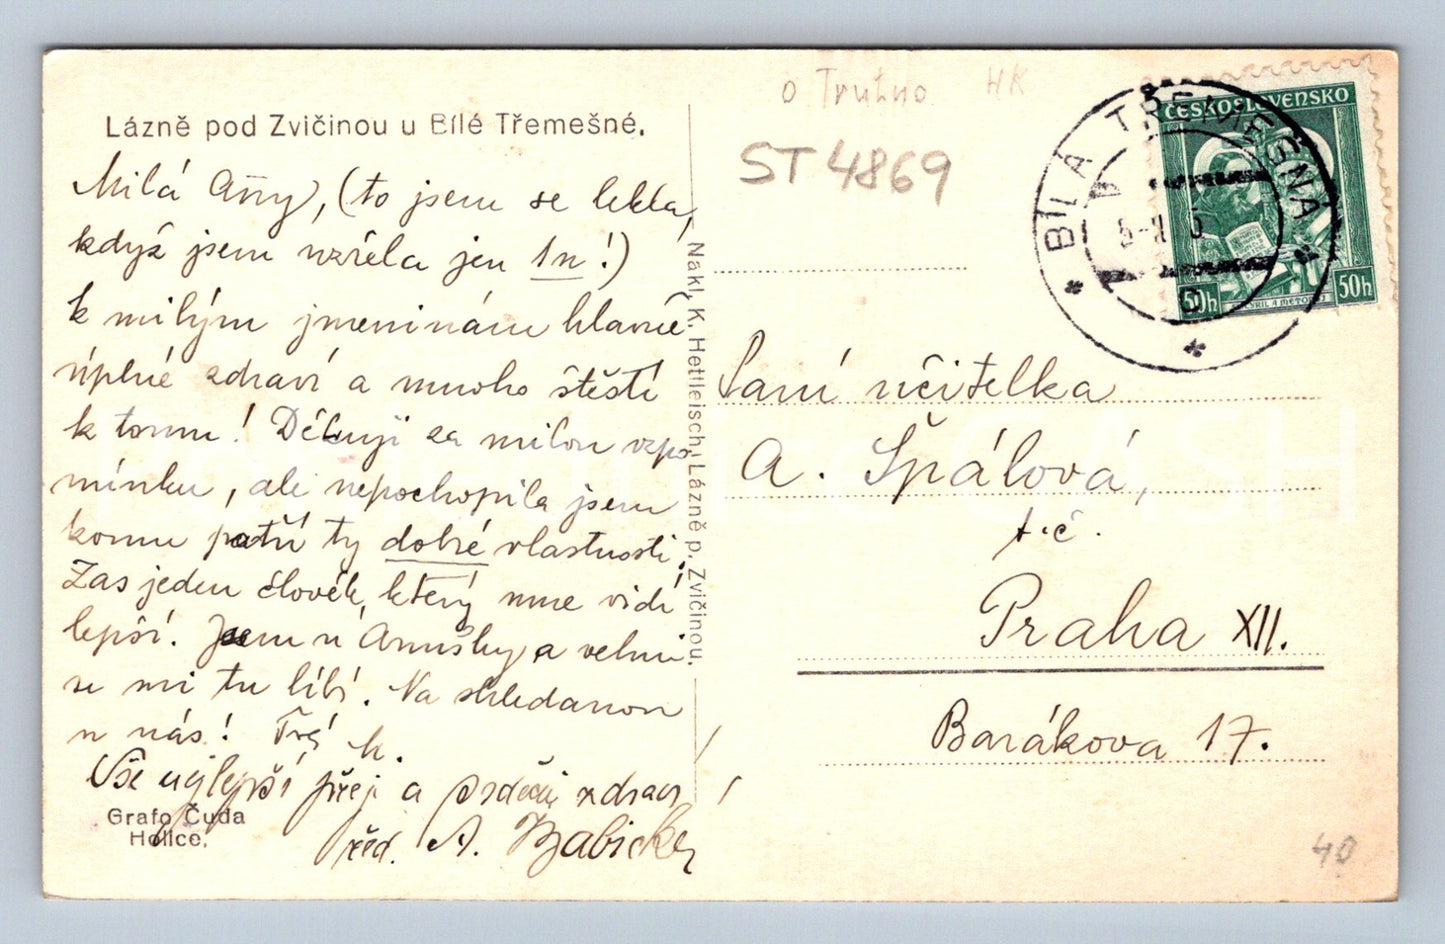 o Trutno HK
ST 4869
Lázně pod Zvičinou u Bílé Třemešné.
Milá Anny, (to jsem se lekla,
když jsem uzřela jen 1 n!)
k milým jmeninám hlavně
úplné zdraví a mnoho štěstí
k tomu! Děkuji za milou vzpo-
mínku, ale nepochopila jsem
komu patří ty dobré vlastnosti.
Zas jeden člověk, který mne vidí
lepší. Jsem u Anušky a velmi
se mi tu líbí. Na shledanou
u nás! Tvá
Vše nejlepší přeje a srdečně zdraví
řed. A.
Grafo Čuda
Holice.
Nakl. K. Hetfleisch, Lázně p. Zvičinou.
BÍLÁ TŘEMEŠNÁ
ČESKOSLOVENSKO
50h
50h
CYRIL A METODĚJ
Paní učitelka
A. Špálová,
t.č.
Praha XII.
Barákova 17.
40